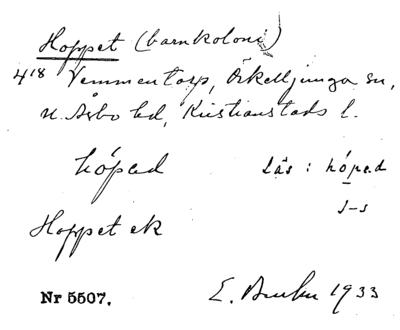 Hoppet (barnkoloni)
4¹⁸ Vemmentorp, Örkelljunga sn,
N. Åsbo hd, Kristianstads l.
hópad läs: hóp.ad
s-s
Hoppet ek
Nr 5507. E. 1933